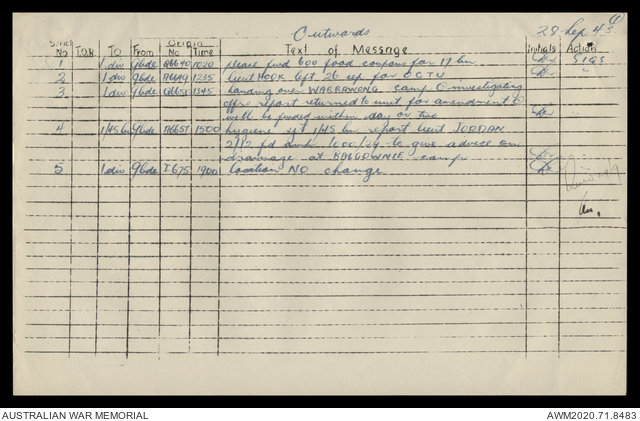 Outwards 28 Sep 43
Serial No T.O.R. To From Origin No Time Text of Message Initials Action
1 1 div 9bde Q6640 1020 please fwd 600 food coupons for 17 bn SIGS
2 1 div 9bde A6649 1235 lieut HOOK left 26 sep for OCTU "
3 1 div 9bde 1345 handing over camp investigating
offr report returned to unit for amendment
will be fwded within day or two
4 1/45 bn 9bde A6657 1500 hygiene sgt 1/45 bn report lieut JORDAN
2/12 fd amb 1000/29 to give advice on
drainage at camp
5 1 div 9bde I 675 1900 location NO change
AUSTRALIAN WAR MEMORIAL AWM2020.71.8483